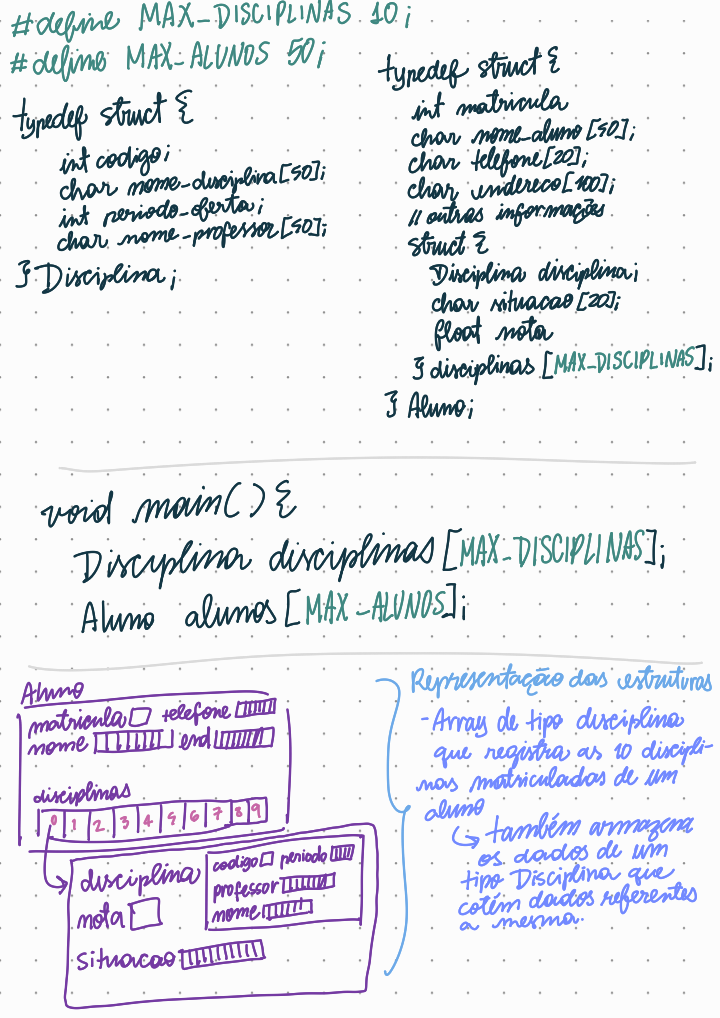 #define MAX_DISCIPLINAS 10;
#define MAX_ALUNOS 50;
typedef struct {
int codigo;
char nome_disciplina[50];
int periodo_oferta;
char nome_professor[50];
} Disciplina;
typedef struct {
int matricula
char nome_aluno[50];
char telefone[20];
char endereco[100];
// outras informações
struct {
Disciplina disciplina;
char situacao[20];
float nota
} disciplinas[MAX_DISCIPLINAS];
} Aluno;
void main() {
Disciplina disciplinas[MAX_DISCIPLINAS];
Aluno alunos[MAX_ALUNOS];
Aluno
matricula telefone
nome end
disciplinas
0 1 2 3 4 5 6 7 8 9
disciplina
nota
Situacao
codigo periodo
professor
nome
Representação das estruturas
- Array de tipo disciplina
que registra as 10 discipli-
nas matriculadas de um
aluno
também armazena
os dados de um
tipo Disciplina que
cotém dados referentes
a mesma.